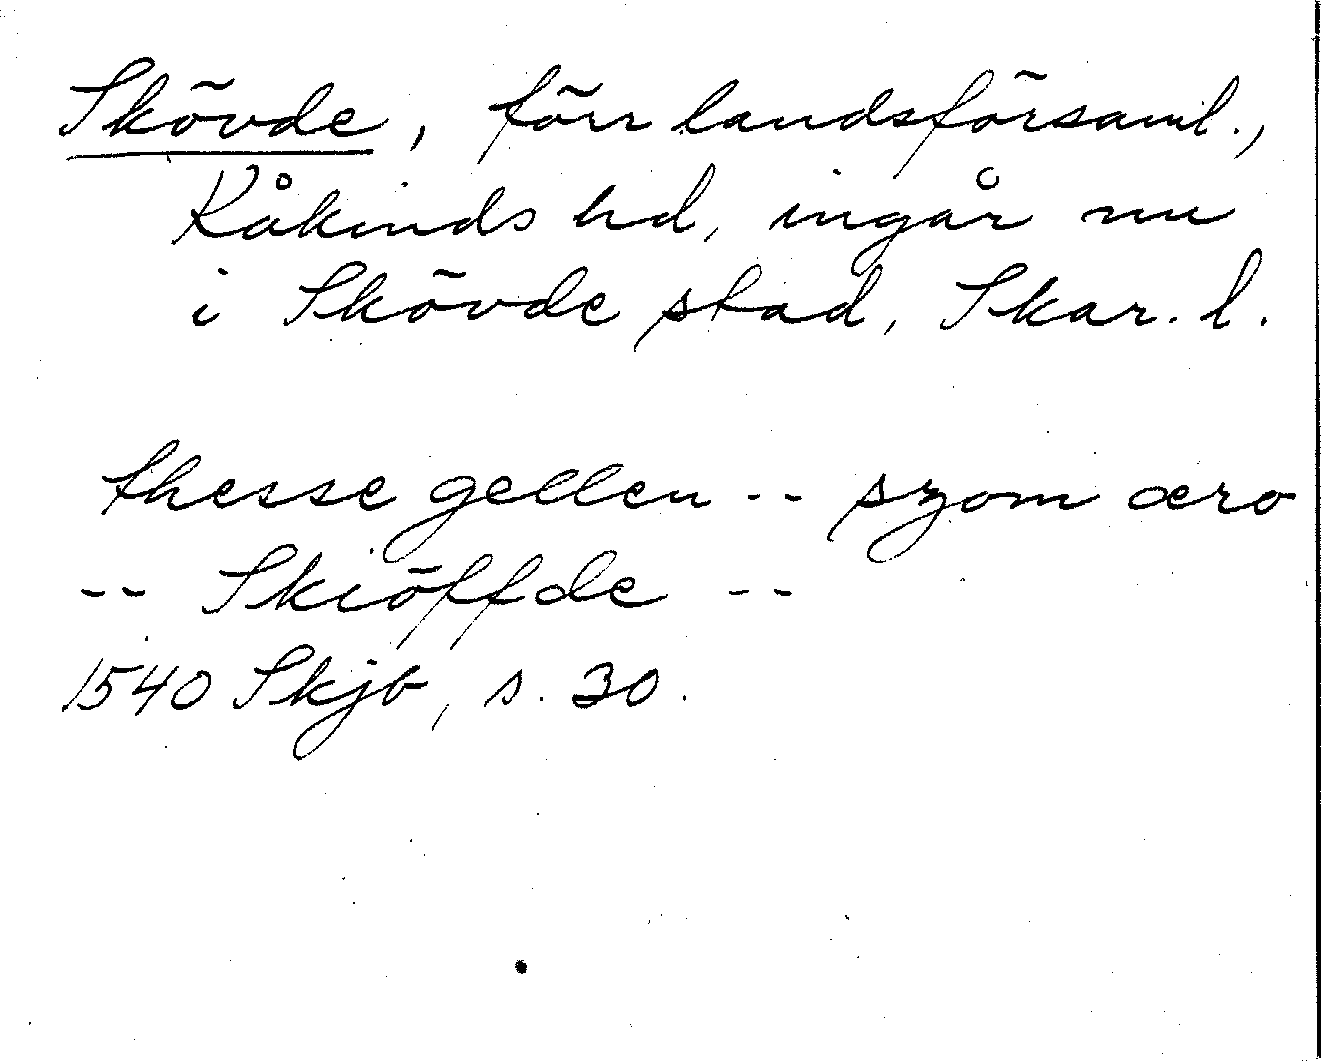 Skövde, förr landsförsaml.,
Kåkinds hd, ingår nu
i Skövde stad, Skar. l.
thesse gellen -- szom æro
-- Skiöffde --
1540 Skjb, s. 30.